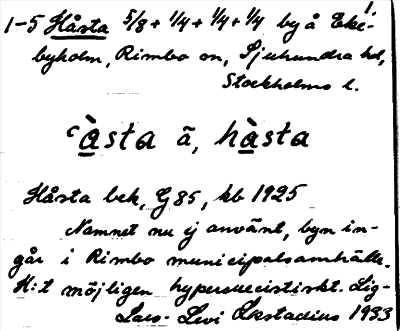 1-5 Håsta 5/8 + 1/4 + 1/4 + 1/4 by å Eke-
byholm, Rimbo sn, Sjuhundra hd,
Stockholms l.
1.
ˁàsta ã, hàsta
Håsta bek, G 85, kb 1925
Namnet nu ej använt, byn in-
går i Rimbo municipalsamhälle.
H:t möjligen hypersuecistiskt. Lig-
Lars-Levi Læstadius 1933